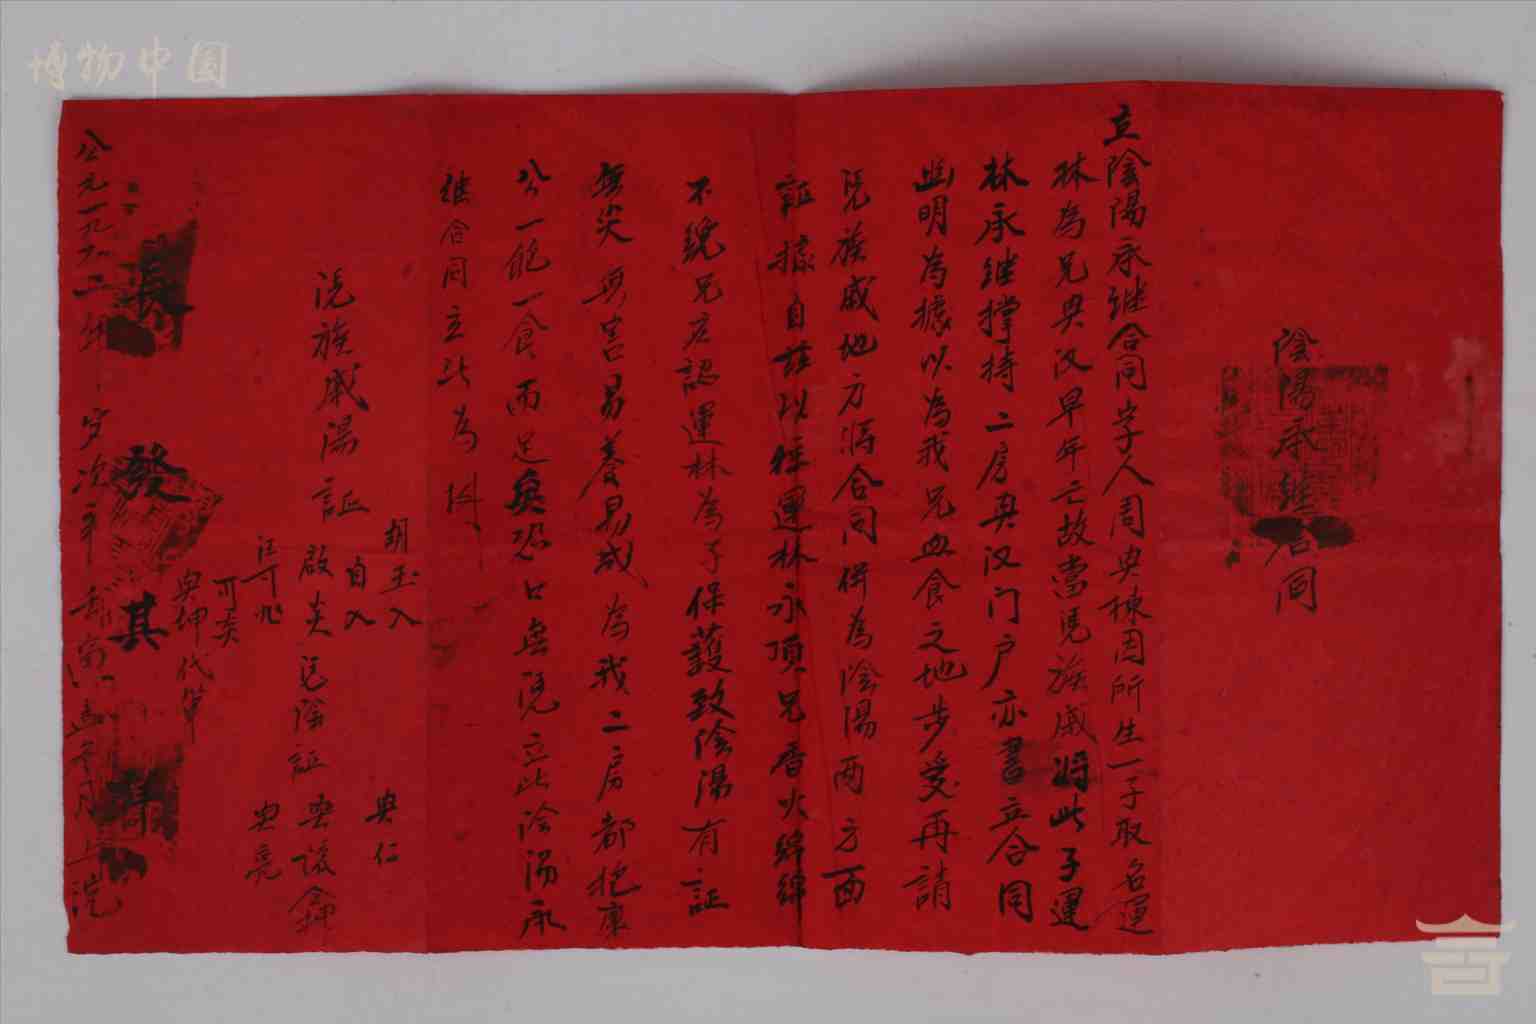 博物中国
陰陽承继合同
立陰陽承继合同字人周典棟因所生一子取名運
林為兄典汉早年亡故當凭族戚将此子運
林承继撑持二房典汉门户亦書立合同
幽明為據以為我兄血食之地步爰再請
凭族戚地方将合同併為陰陽两方面
証據自兹以往運林永頂兄香火綿綿
不绝兄應認運林為子保護致陰陽有証
無災無害易養易成為我二房都把禀
公一飽一食而足矣恐口無凭立此陰陽承
继合同立此為
胡玉入
自入
凭族戚陽証
啟炎
可炎
典坤代筆
凭陰証
典仁
典亮
公元一九六一年岁次辛丑
上浣
長發其